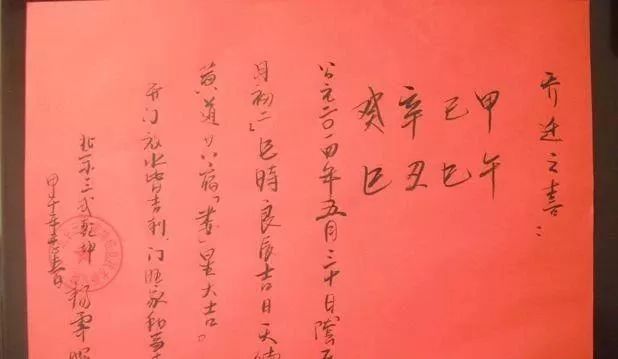 乔迁之喜：
甲午
己巳
辛丑
癸巳
公元二〇一四年五月三十日陰
月初二巳時良辰吉日天
黄道廿八宿「娄」星大吉。
开门放水皆吉利,门旺家和万
北京三式乾坤 杨
甲午年